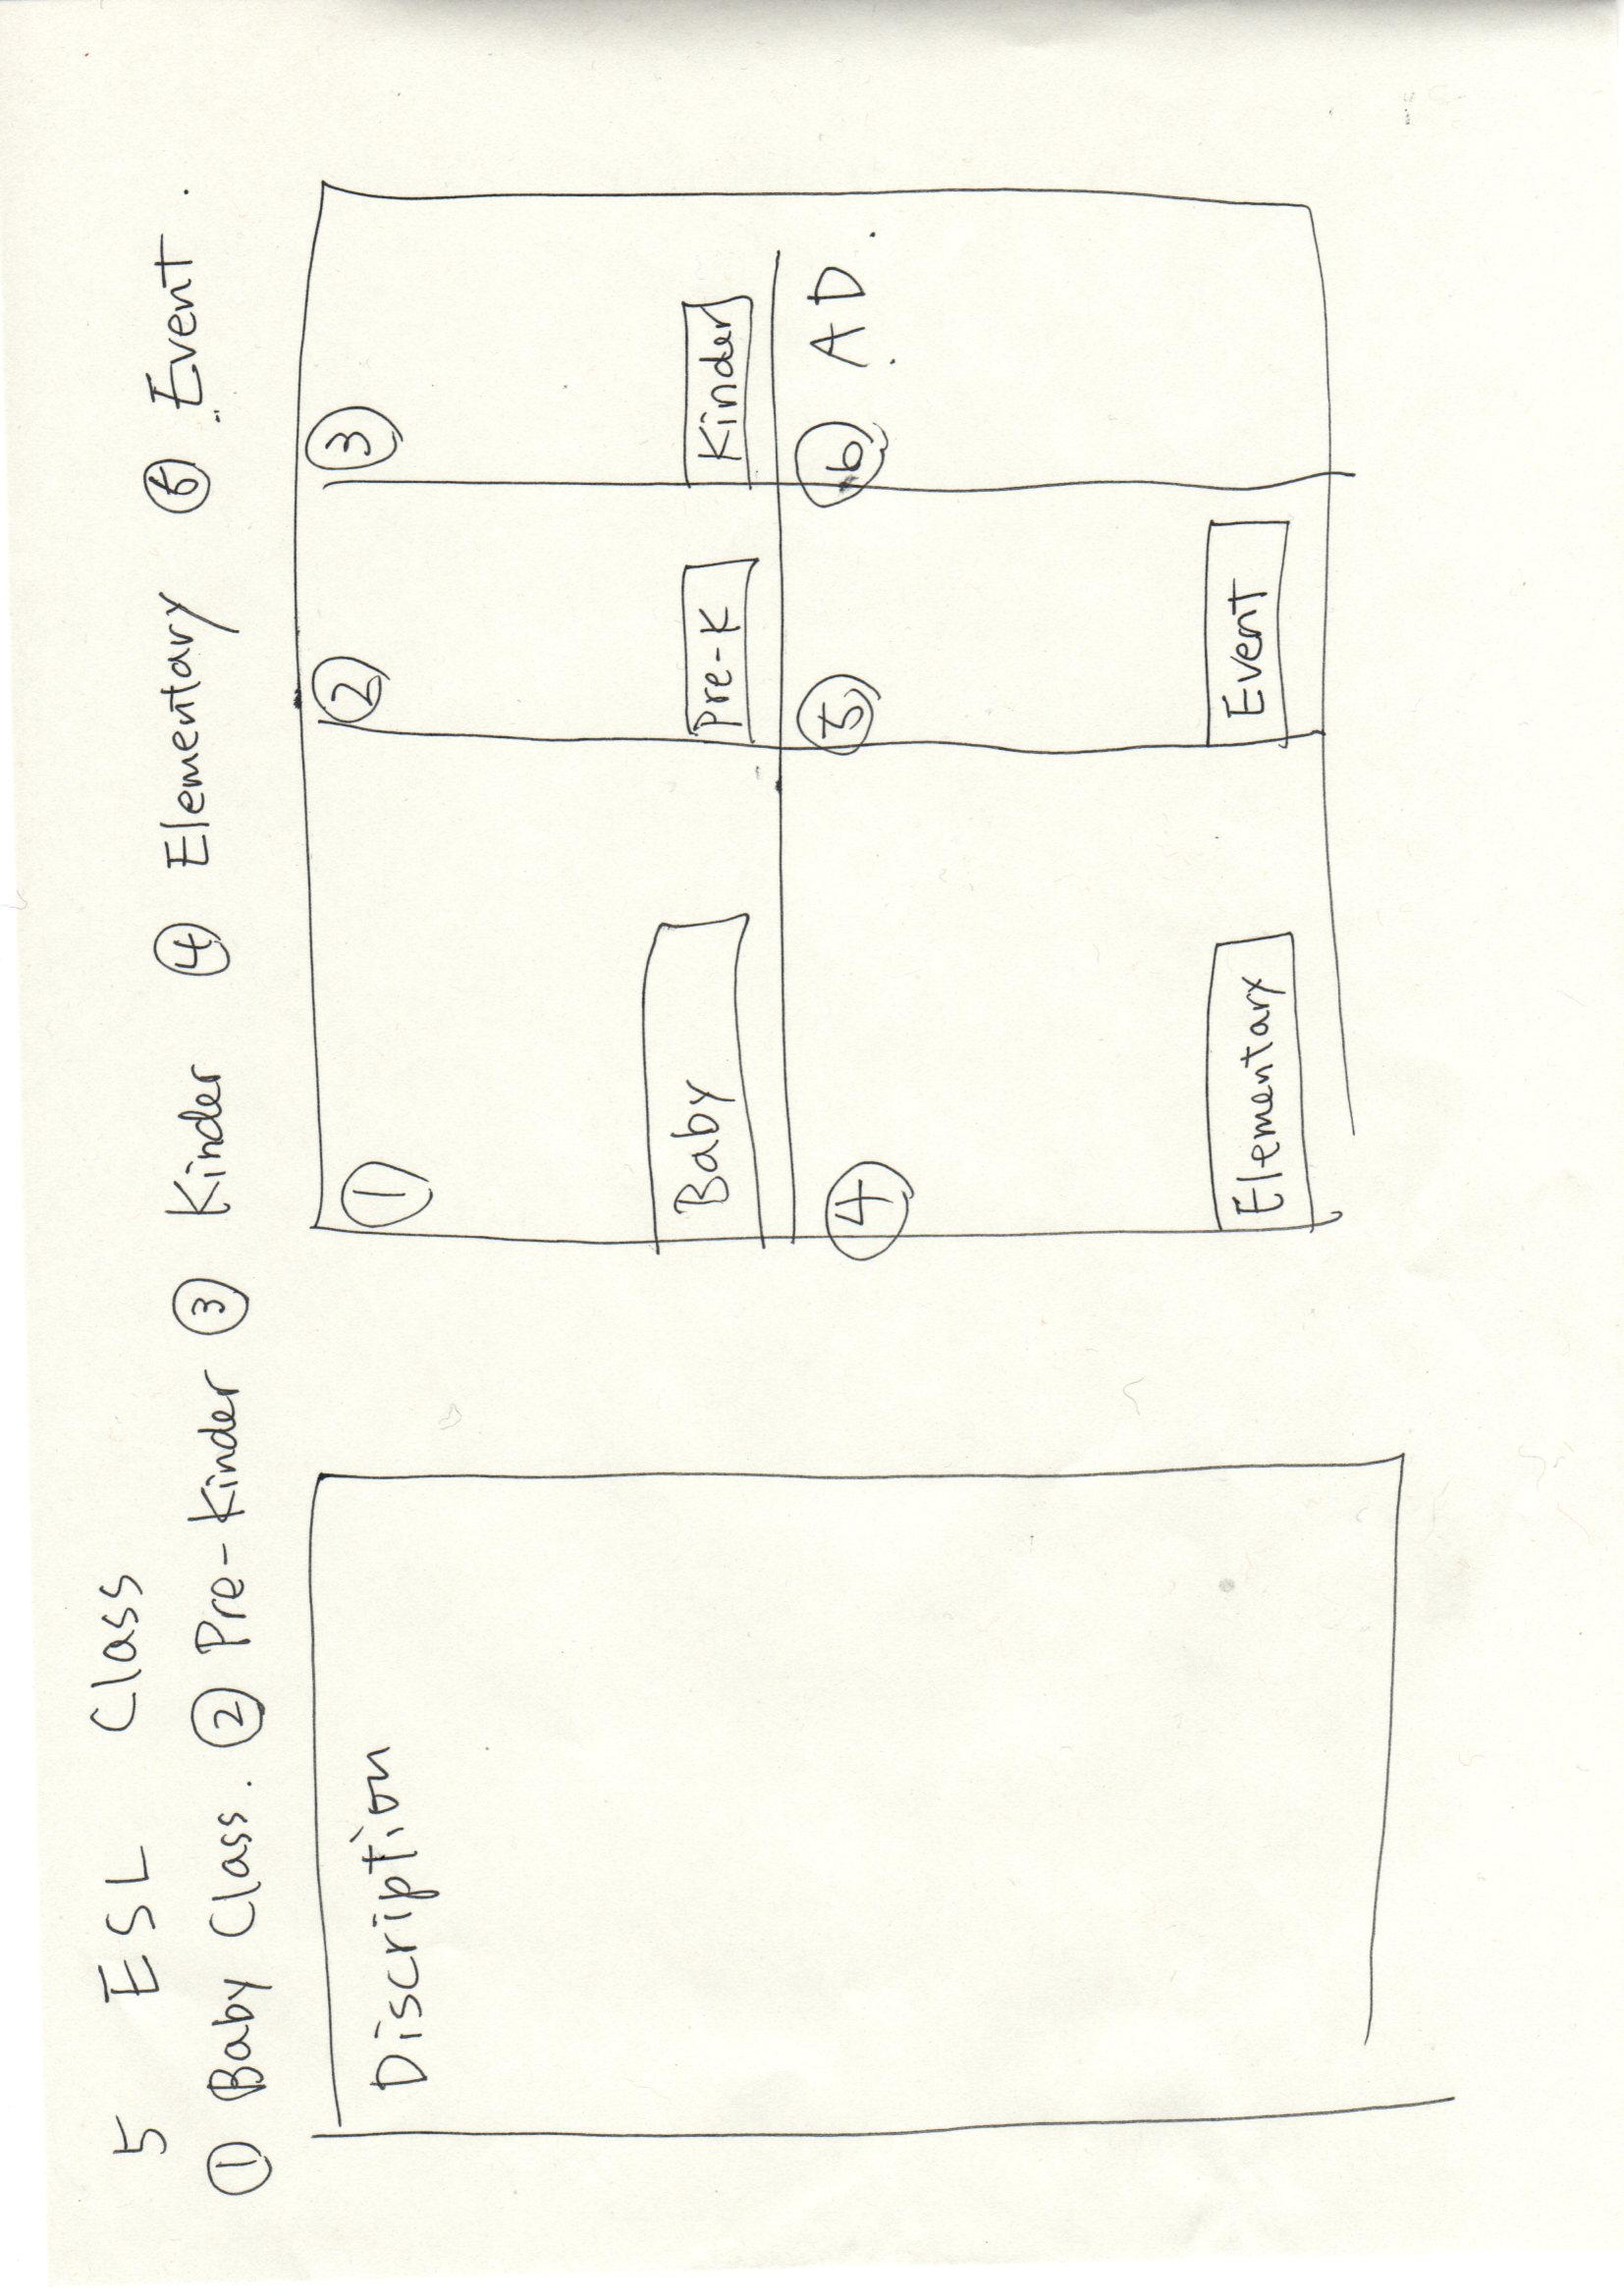 5 ESL Class
① Baby Class. ② Pre-Kinder ③ Kinder ④ Elementary ⑤ Event.
Discription
①
Baby
②
Pre-K
③
Kinder
④
Elementary
⑤
Event
⑥ AD.